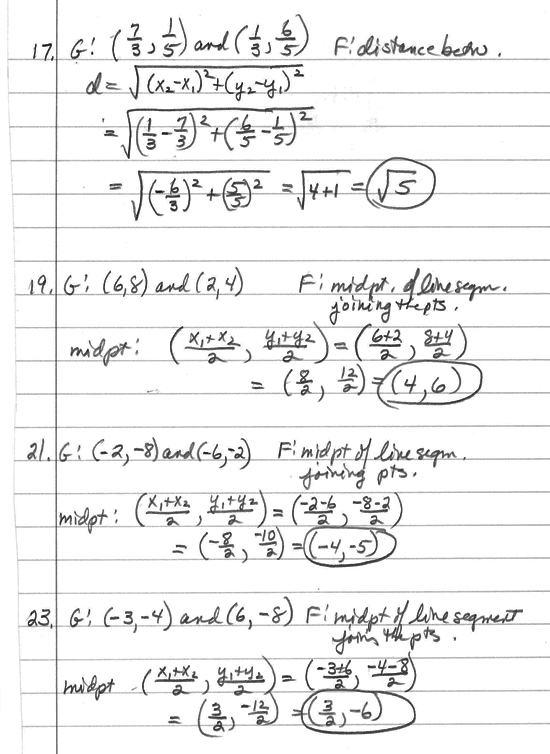 17. G: (7/3, 1/5) and (1/3, 6/5) F: distance betw.
d = √((x₂-x₁)²+(y₂-y₁)²)
= √((1/3 - 7/3)² + (6/5 - 1/5)²)
= √((-6/3)² + (5/5)²) = √(4+1) = √5
19. G: (6,8) and (2,4) F: midpt. of line segm.
joining the pts.
midpt: ((x₁+x₂)/2, (y₁+y₂)/2) = ((6+2)/2, (8+4)/2)
= (8/2, 12/2) = (4,6)
21. G: (-2,-8) and (-6,-2) F: midpt of line segm.
joining pts.
midpt: ((x₁+x₂)/2, (y₁+y₂)/2) = ((-2-6)/2, (-8-2)/2)
= (-8/2, -10/2) = (-4,-5)
23. G: (-3,-4) and (6,-8) F: midpt of line segment
join the pts.
midpt ((x₁+x₂)/2, (y₁+y₂)/2) = ((-3+6)/2, (-4-8)/2)
= (3/2, -12/2) = (3/2, -6)